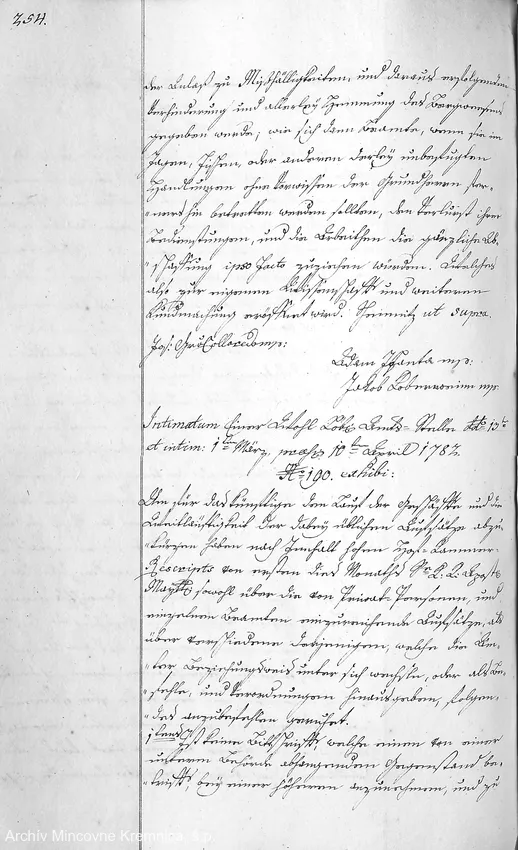 254.
der Anlaß zu Mißhälligkeiten, und daraus erfolgenden
Verhinderung und allerley Hemmung des Bergwesens
gegeben werde; wie sich dann Beamte, wenn sie im
Jagen, Fischen, oder anderen derley unbefugten
Handlungen ohne Vorwissen der Grundherren fer-
-nershin betretten werden sollten, den Verlurst ihrer
Bedienstungen, und die Arbeither die gänzliche Ab-
-schaffung ipso facto zuziehen würden. Welches
also zur eigenen Wissenschaft und weiteren
Kundmachung eröffnet wird. Schemnitz ut supra.
Jos: Gr: Colloredo mp:
Adam mp:
Jakob mp
Intimatum Einer Wohl Löb: Amts-Stelle ddo 13te
et intim: 1ten März, præs: 10ten April 1782.
No 190. exhibi:
Um für das künftige den Lauf der Geschäfte und die
Weitläufigkeit der dabey üblichen Aufsätze abzu-
-kürzen haben nach Innhalt hohen Hof-Kammer-
Rescripts von ersten dies Monaths Se. K. K. Apost:
Maytt: sowohl über die von Privat-Personen, und
einzelnen Beamten einzureichende Aufsätze, als
über verschiedene derjenigen, welche die Äm-
-ter beziehungsweis unter sich wechseln, oder als Be-
-fehle, und Verordnungen hinausgeben, folgen-
-des anzubefehlen geruhet.
1tens Ist keine Bittschrift, welche einen von einer
unteren Behörde abhangenden Gegenstand be-
-trift, bey einer höheren anzunehmen, und zu
Archív Mincovne Kremnica, š.p.